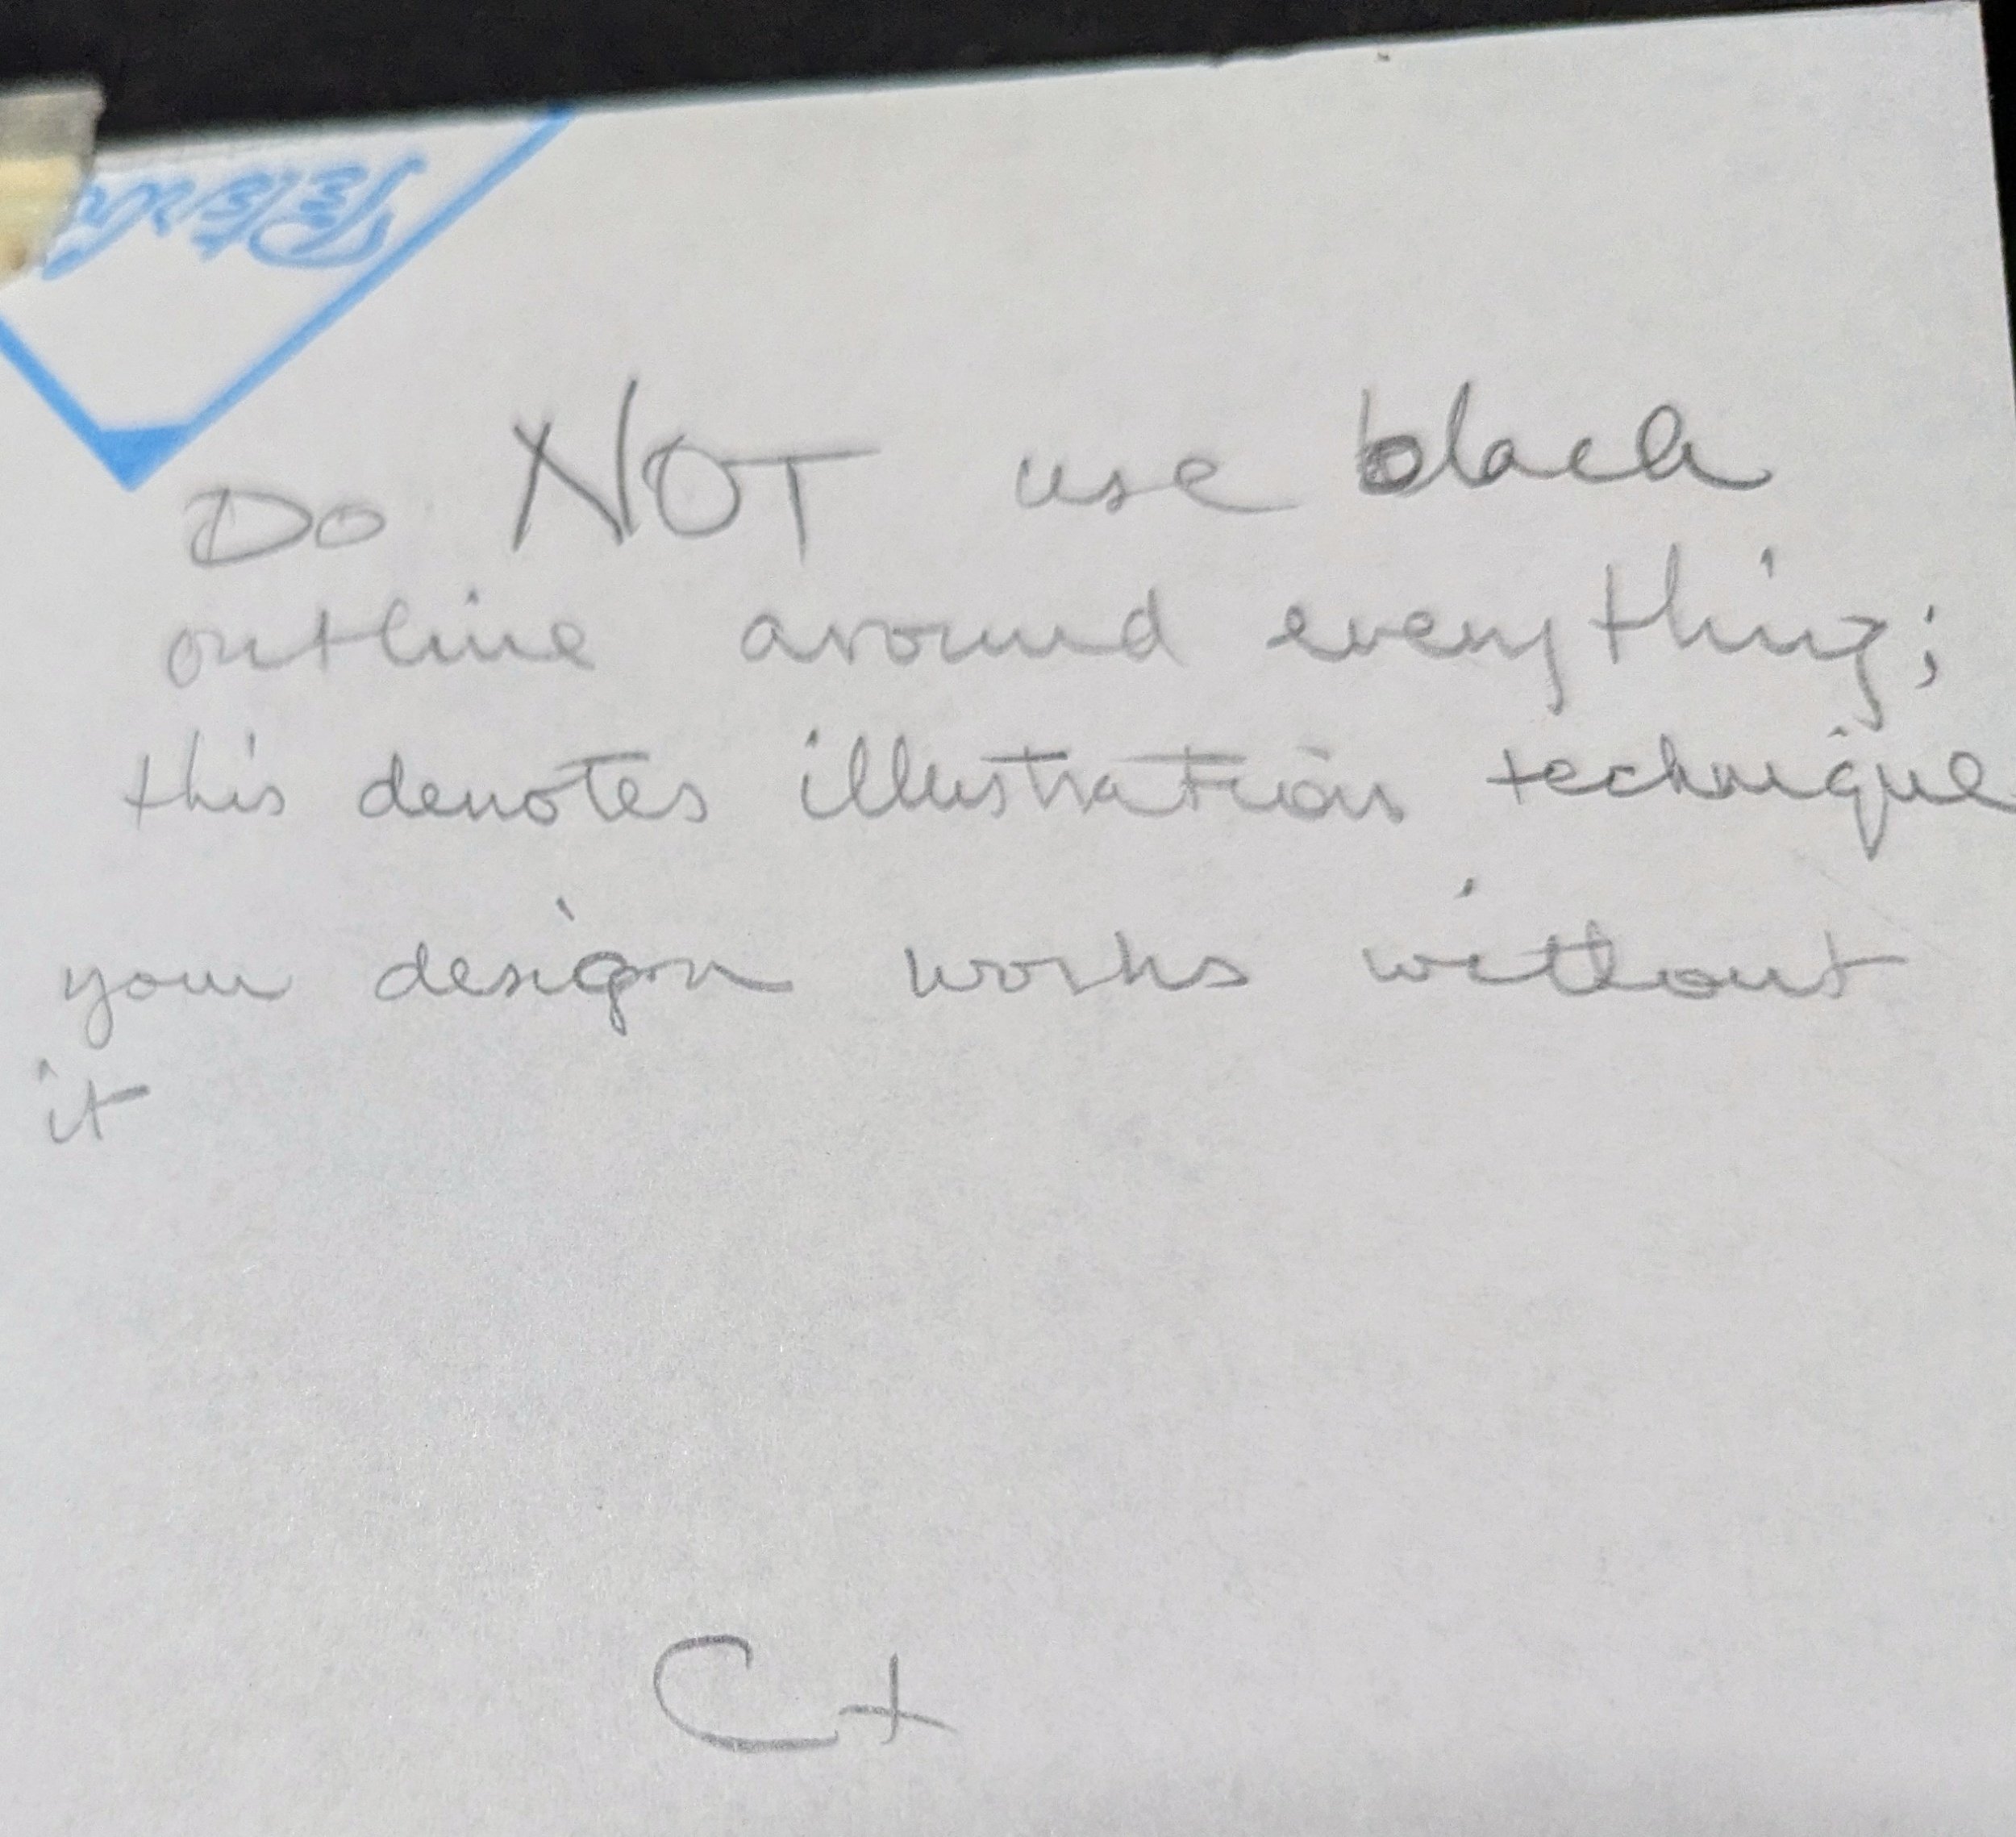 Do NOT use black
outline around everything;
this denotes illustration technique
your design works without
it
C+